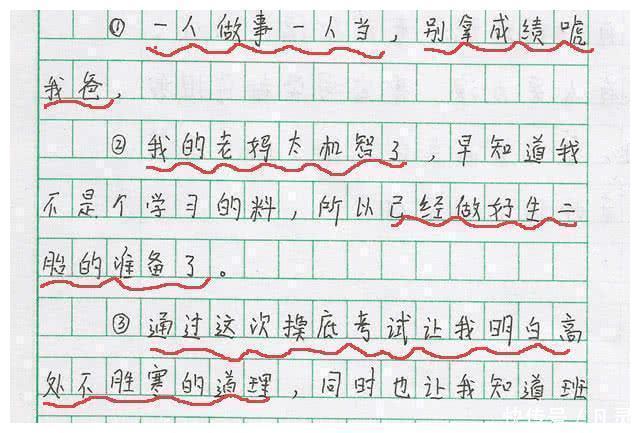 ① 一人做事一人当，别拿成绩唬
我爸，
② 我的老妈太机智了，早知道我
不是个学习的料，所以已经做好生二
胎的准备了。
③ 通过这次摸底考试让我明白高
处不胜寒的道理，同时也让我知道班
快传号/